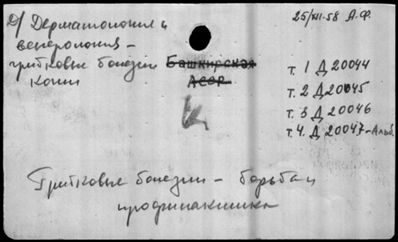 Д/ Дерматология и
венерология –
грибковые болезни
кожи
Башкирская
Асср.
25/XII-58 А.Ф.
т. 1 Д 20044
т. 2 Д 20045
т. 3 Д 20046
т. 4. Д 20047-Альб.
К
Грибковые болезни – борьба и
профилактика